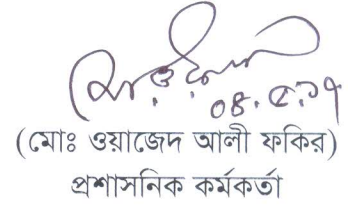 ০৪.৫.১৭
(মোঃ ওয়াজেদ আলী ফকির)
প্রশাসনিক কর্মকর্তা